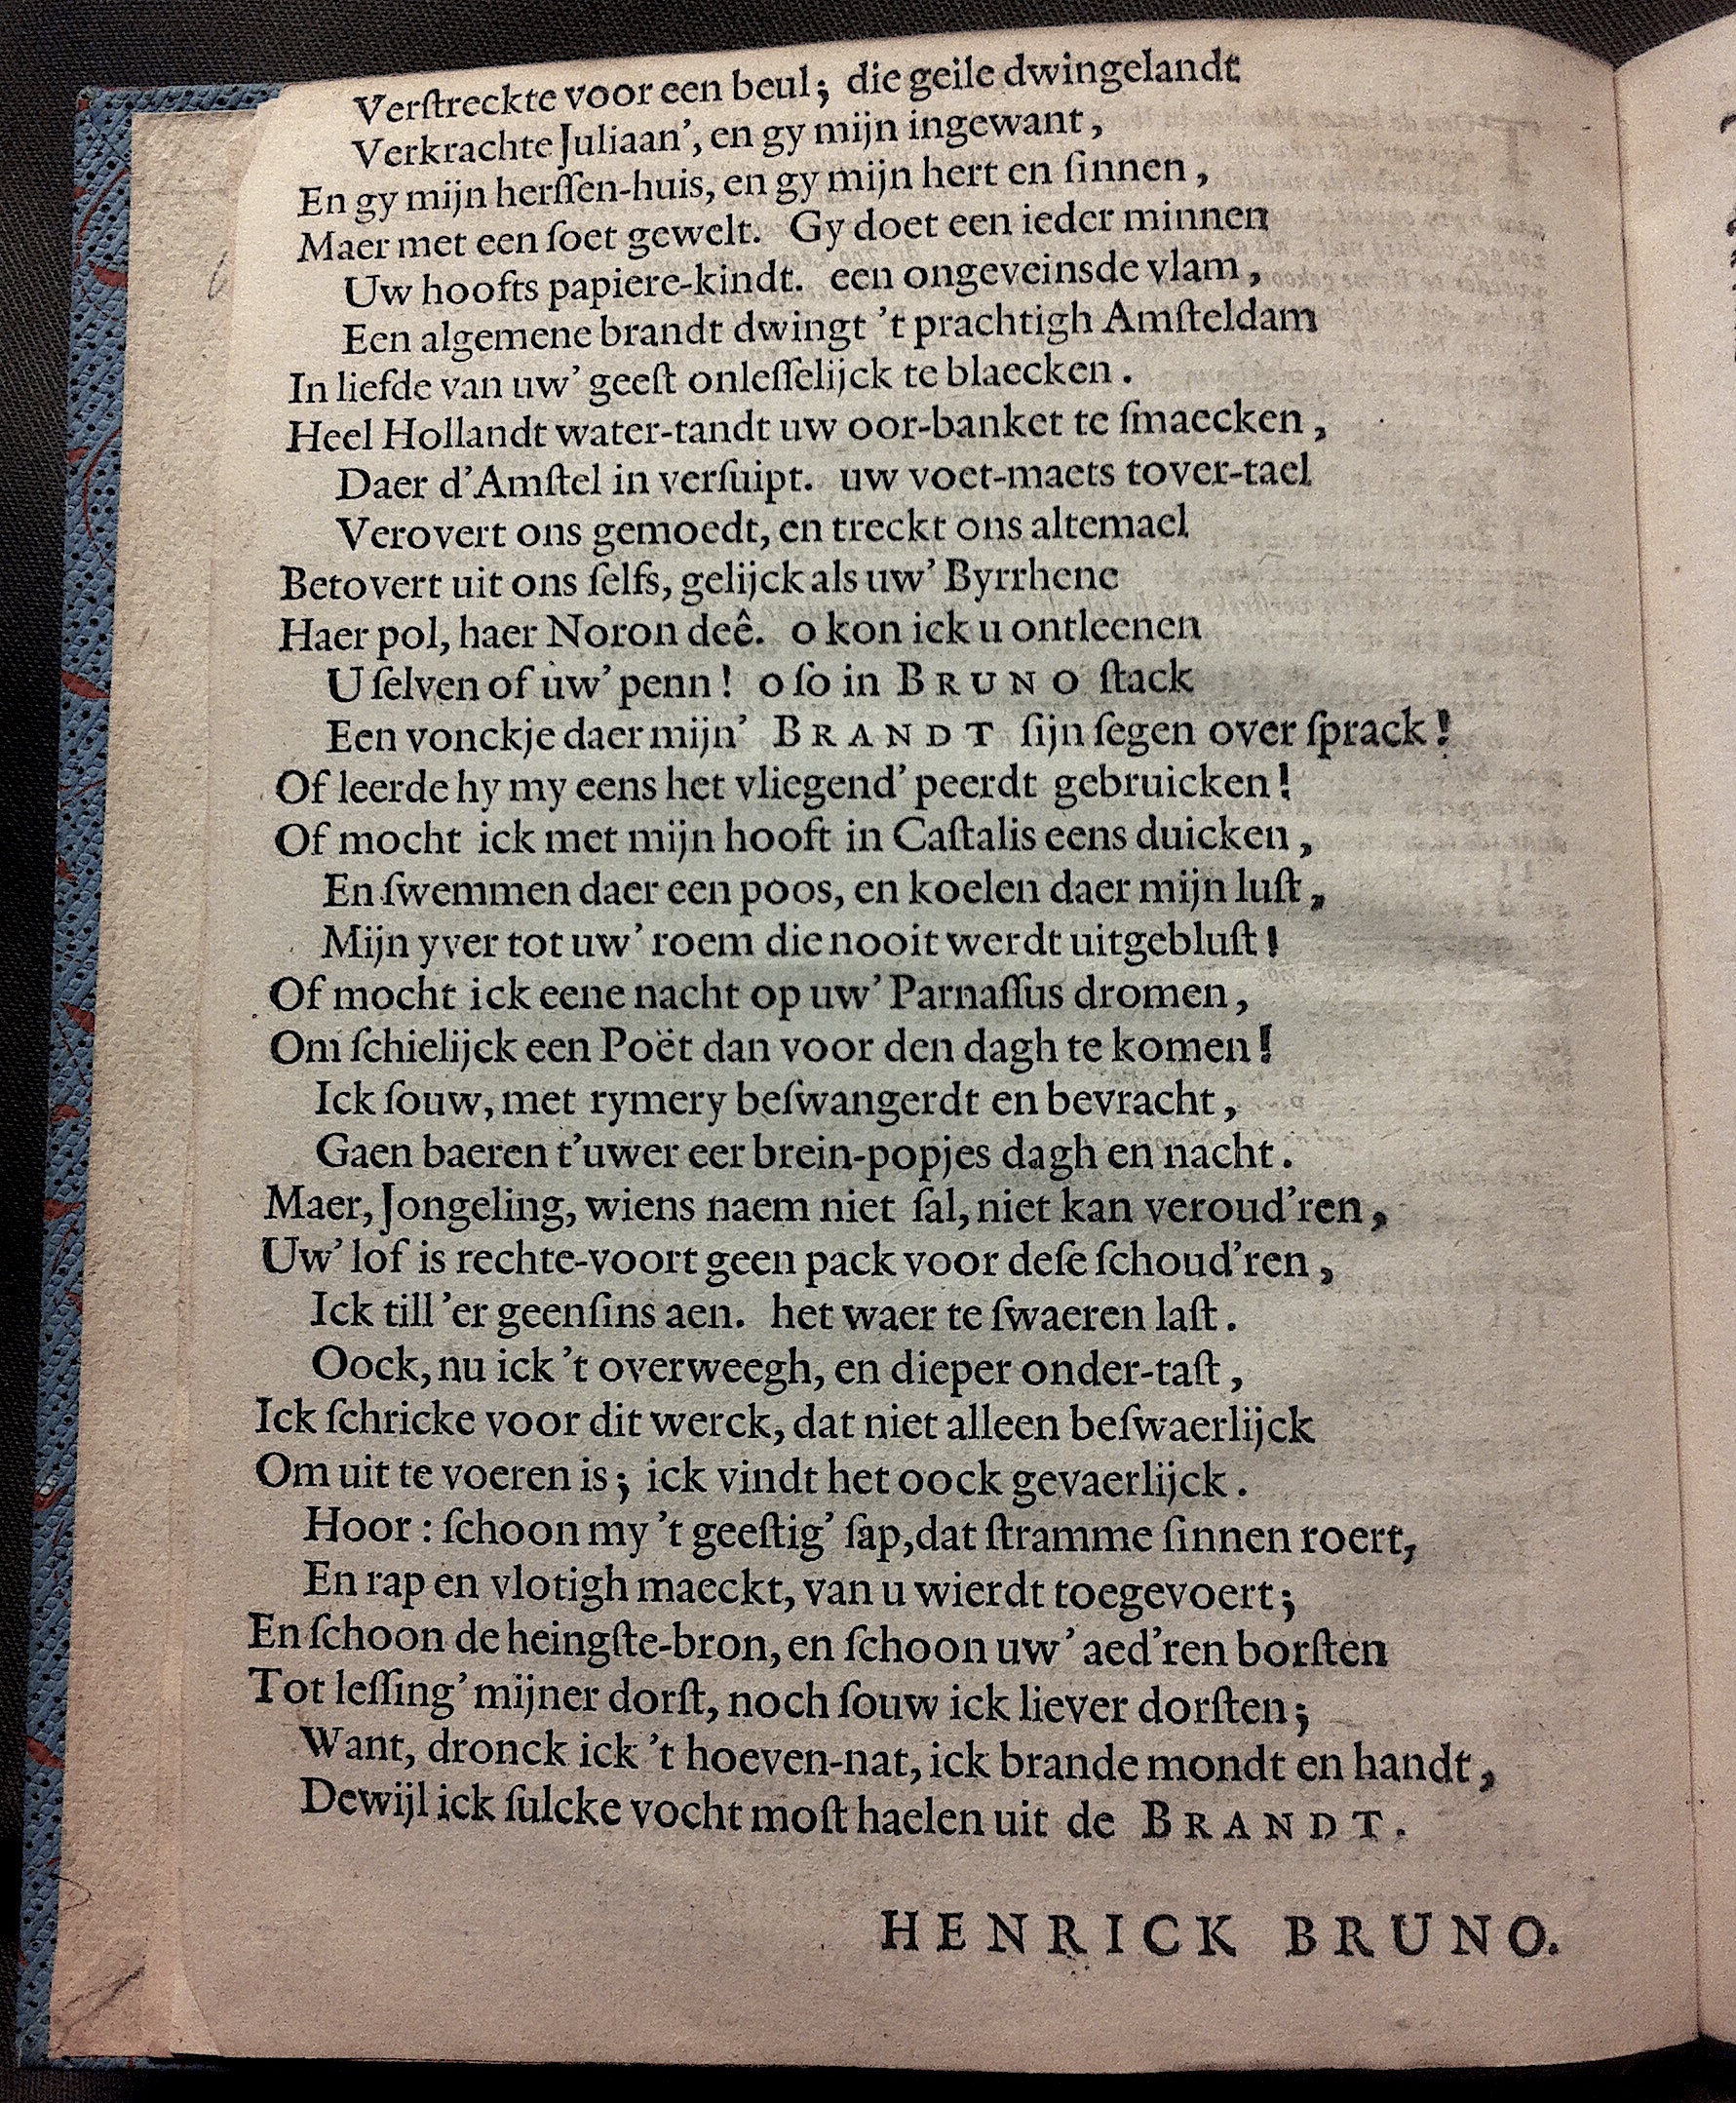 Verſtreckte voor een beul; die geile dwingelandt
Verkrachte Juliaan', en gy mijn ingewant,
En gy mijn herſſen-huis, en gy mijn hert en ſinnen,
Maer met een ſoet gewelt. Gy doet een ieder minnen
Uw hoofts papiere-kindt. een ongeveinsde vlam,
Een algemene brandt dwingt 't prachtigh Amſteldam
In liefde van uw' geeſt onleſſelijck te blaecken.
Heel Hollandt water-tandt uw oor-banket te ſmaecken,
Daer d'Amſtel in verſuipt. uw voet-maets tover-tael
Verovert ons gemoedt, en treckt ons altemael
Betovert uit ons ſelfs, gelijck als uw' Byrrhene
Haer pol, haer Noron deê. o kon ick u ontleenen
U ſelven of uw' penn! o ſo in BRUNO ſtack
Een vonckje daer mijn' BRANDT ſijn ſegen over ſprack!
Of leerde hy my eens het vliegend' peerdt gebruicken!
Of mocht ick met mijn hooft in Caſtalis eens duicken,
En ſwemmen daer een poos, en koelen daer mijn luſt,
Mijn yver tot uw' roem die nooit werdt uitgebluſt!
Of mocht ick eene nacht op uw' Parnaſſus dromen,
Om ſchielijck een Poët dan voor den dagh te komen!
Ick ſouw, met rymery beſwangerdt en bevracht,
Gaen baeren t'uwer eer brein-popjes dagh en nacht.
Maer, Jongeling, wiens naem niet ſal, niet kan veroud'ren,
Uw' lof is rechte-voort geen pack voor deſe ſchoud'ren,
Ick till 'er geenſins aen. het waer te ſwaeren laſt.
Oock, nu ick 't overweegh, en dieper onder-taſt,
Ick ſchricke voor dit werck, dat niet alleen beſwaerlijck
Om uit te voeren is; ick vindt het oock gevaerlijck.
Hoor: ſchoon my 't geeſtig' ſap, dat ſtramme ſinnen roert,
En rap en vlotigh maeckt, van u wierdt toegevoert;
En ſchoon de heingſte-bron, en ſchoon uw' aed'ren borſten
Tot leſſing' mijner dorſt, noch ſouw ick liever dorſten;
Want, dronck ick 't hoeven-nat, ick brande mondt en handt,
Dewijl ick ſulcke vocht moſt haelen uit de BRANDT.
HENRICK BRUNO.